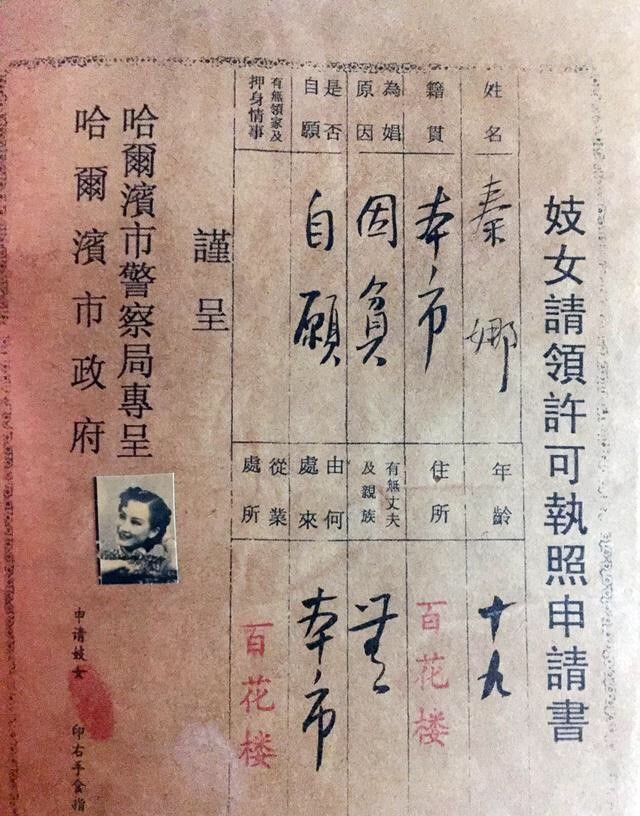 妓女請領許可執照申請書
姓名
秦娜
年齡
十九
籍貫
本市
住所
百花楼
為娼
原因
因貧
有無丈夫
及親族
無
是否
自願
自願
由何
處來
本市
有無領家及
押身情事
從業
處所
百花楼
謹呈
哈爾濱市警察局專呈
哈爾濱市政府
申请妓女 印右手食指